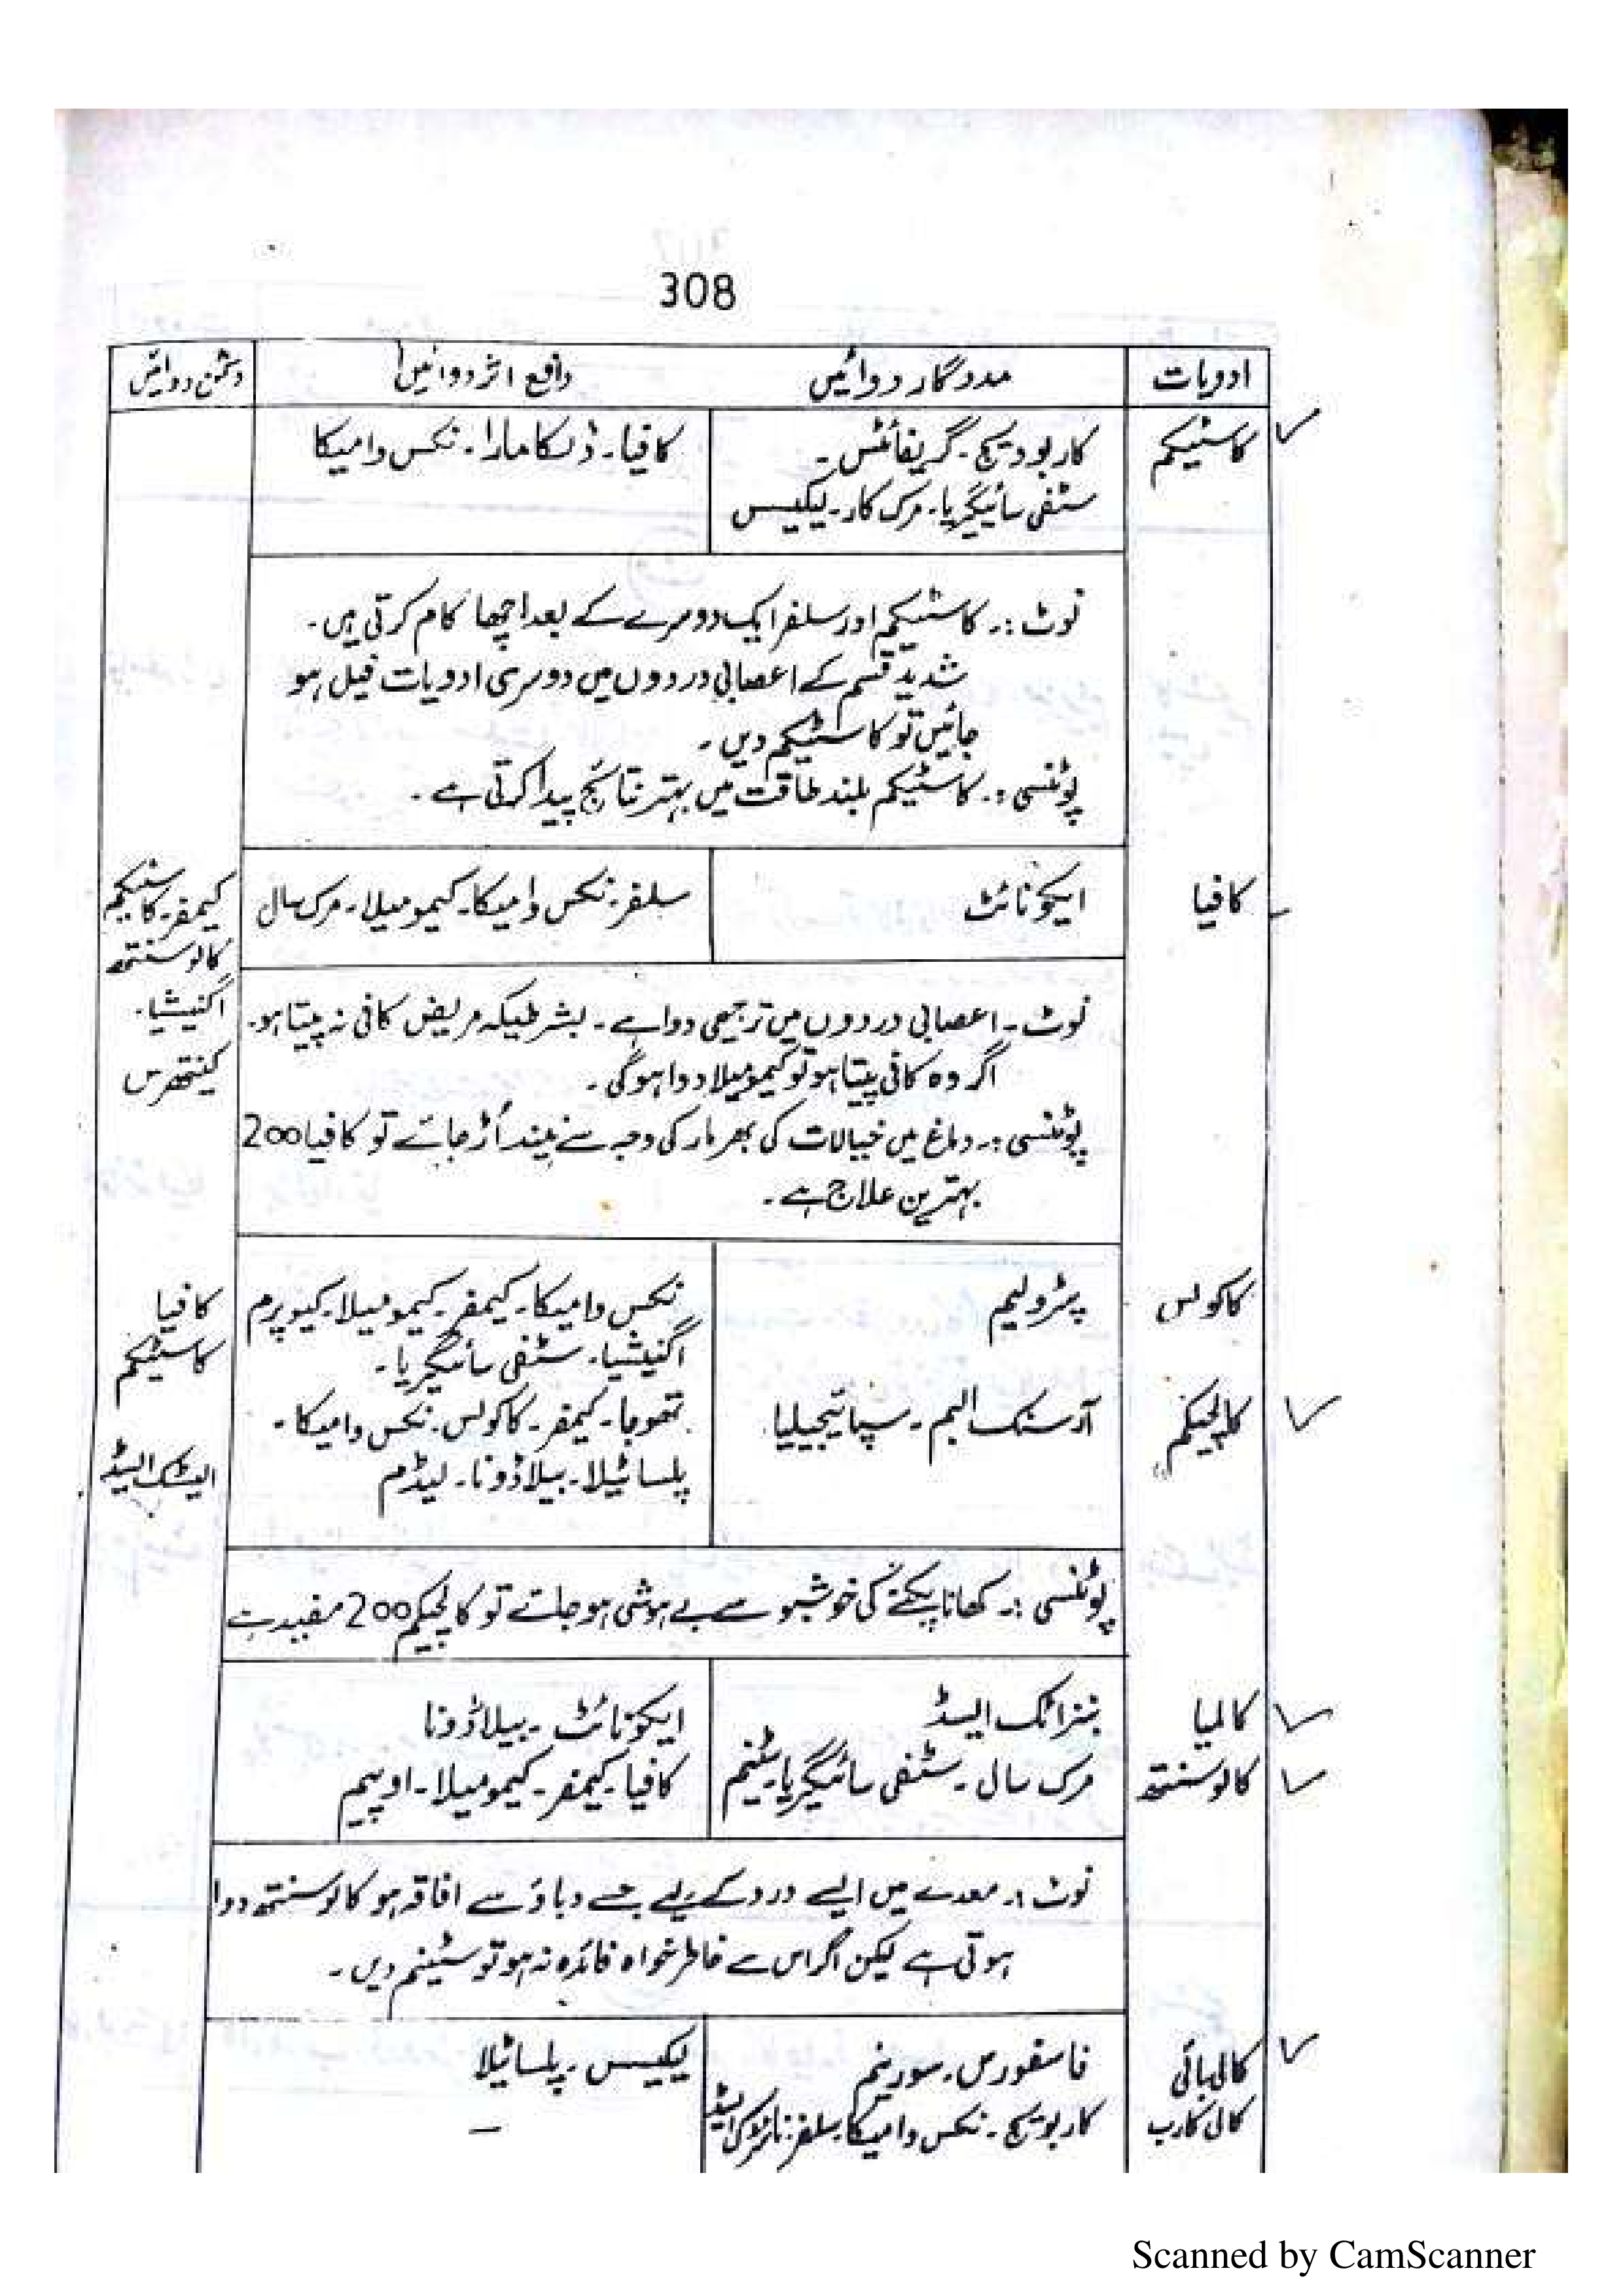 308
ادویات مددگار دوائیں دافع اثر دوائیں دشمن دوائیں
کاسٹیکم کاربوویج۔ گریفائٹس۔ کافیا۔ ڈلکامارا۔ نکس وامیکا
سٹفی سائیگریا۔ مرک کار۔ لیکیسس
نوٹ:۔ کاسٹیکم اور سلفر ایک دوسرے کے بعد اچھا کام کرتی ہیں۔
شدید قسم کے اعصابی دردوں میں دوسری ادویات فیل ہو
جائیں تو کاسٹیکم دیں۔
پوٹنسی:۔ کاسٹیکم بلند طاقت میں بہتر نتائج پیدا کرتی ہے۔
کافیا ایکونائٹ سلفر۔ نکس وامیکا۔ کیمومیلا۔ مرک سال کیمفر۔ کاسٹیکم
کالوسنتھ
نوٹ۔ اعصابی دردوں میں ترجیحی دوا ہے۔ بشرطیکہ مریض کافی نہ پیتا ہو۔ اگنیشیا۔
اگر وہ کافی پیتا ہو تو کیمومیلا دوا ہوگی۔ کینتھرس
پوٹنسی:۔ دماغ میں خیالات کی بھرمار کی وجہ سے نیند اُڑ جائے تو کافیا 200
بہترین علاج ہے۔
کاکولس پٹرولیم نکس وامیکا۔ کیمفر۔ کیمومیلا۔ کیوپرم کافیا
اگنیشیا۔ سٹفی سائیگریا۔ کاسٹیکم
کالچیکم آرسنک البم۔ سپائیجیلیا تھوجا۔ کیمفر۔ کاکولس۔ نکس وامیکا۔
پلساٹیلا۔ بیلاڈونا۔ لیڈم ایسٹک ایسڈ
پوٹنسی:۔ کھانا پکنے کی خوشبو سے بے ہوشی ہو جائے تو کالچیکم 200 مفید ہے
کالمیا بنزائک ایسڈ ایکونائٹ۔ بیلاڈونا
کالوسنتھ مرک سال۔ سٹفی سائیگریا۔ سٹینم کافیا۔ کیمفر۔ کیمومیلا۔ اوپیم
نوٹ:۔ معدے میں ایسے درد کے لیے جسے دباؤ سے افاقہ ہو کالوسنتھ دوا
ہوتی ہے لیکن اگر اس سے خاطر خواہ فائدہ نہ ہو تو سٹینم دیں۔
کالی بائی فاسفورس۔ سورینم لیکیسس۔ پلساٹیلا
کالی کارب کاربوویج۔ نکس وامیکا۔ سلفر۔ نائٹرک ایسڈ —
Scanned by CamScanner